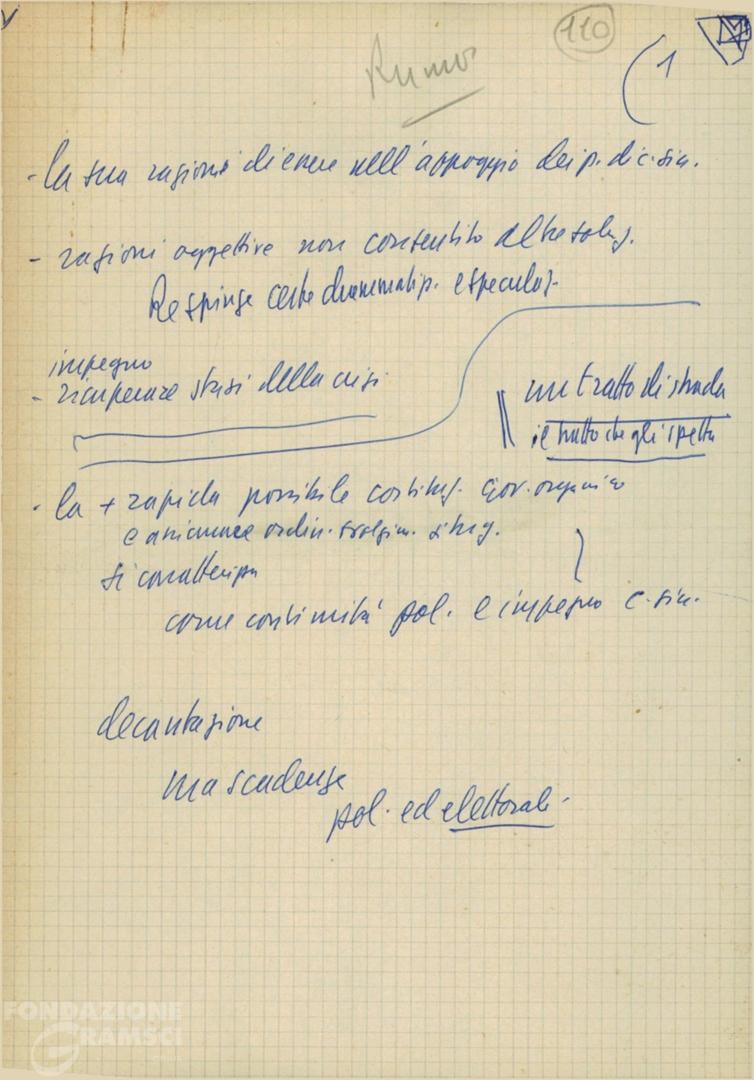 110
Rumor
1
- la sua ragione di essere nell'appoggio dei p. di c. sin.
- ragioni oggettive non consentito altre soluz.
Respinge certe drammatip. e speculaz.
impegno
- ricuperare stasi della crisi
un tratto di strada
il tratto che gli spetta
- la + rapida possibile costituz. Gov. organico
e assicurare ordin. svolgim.
si caratterizza
come continuità pol. e impegno c. sin.
decantazione
ma scadenze
pol. ed elettorali.
FONDAZIONE
GRAMSCI